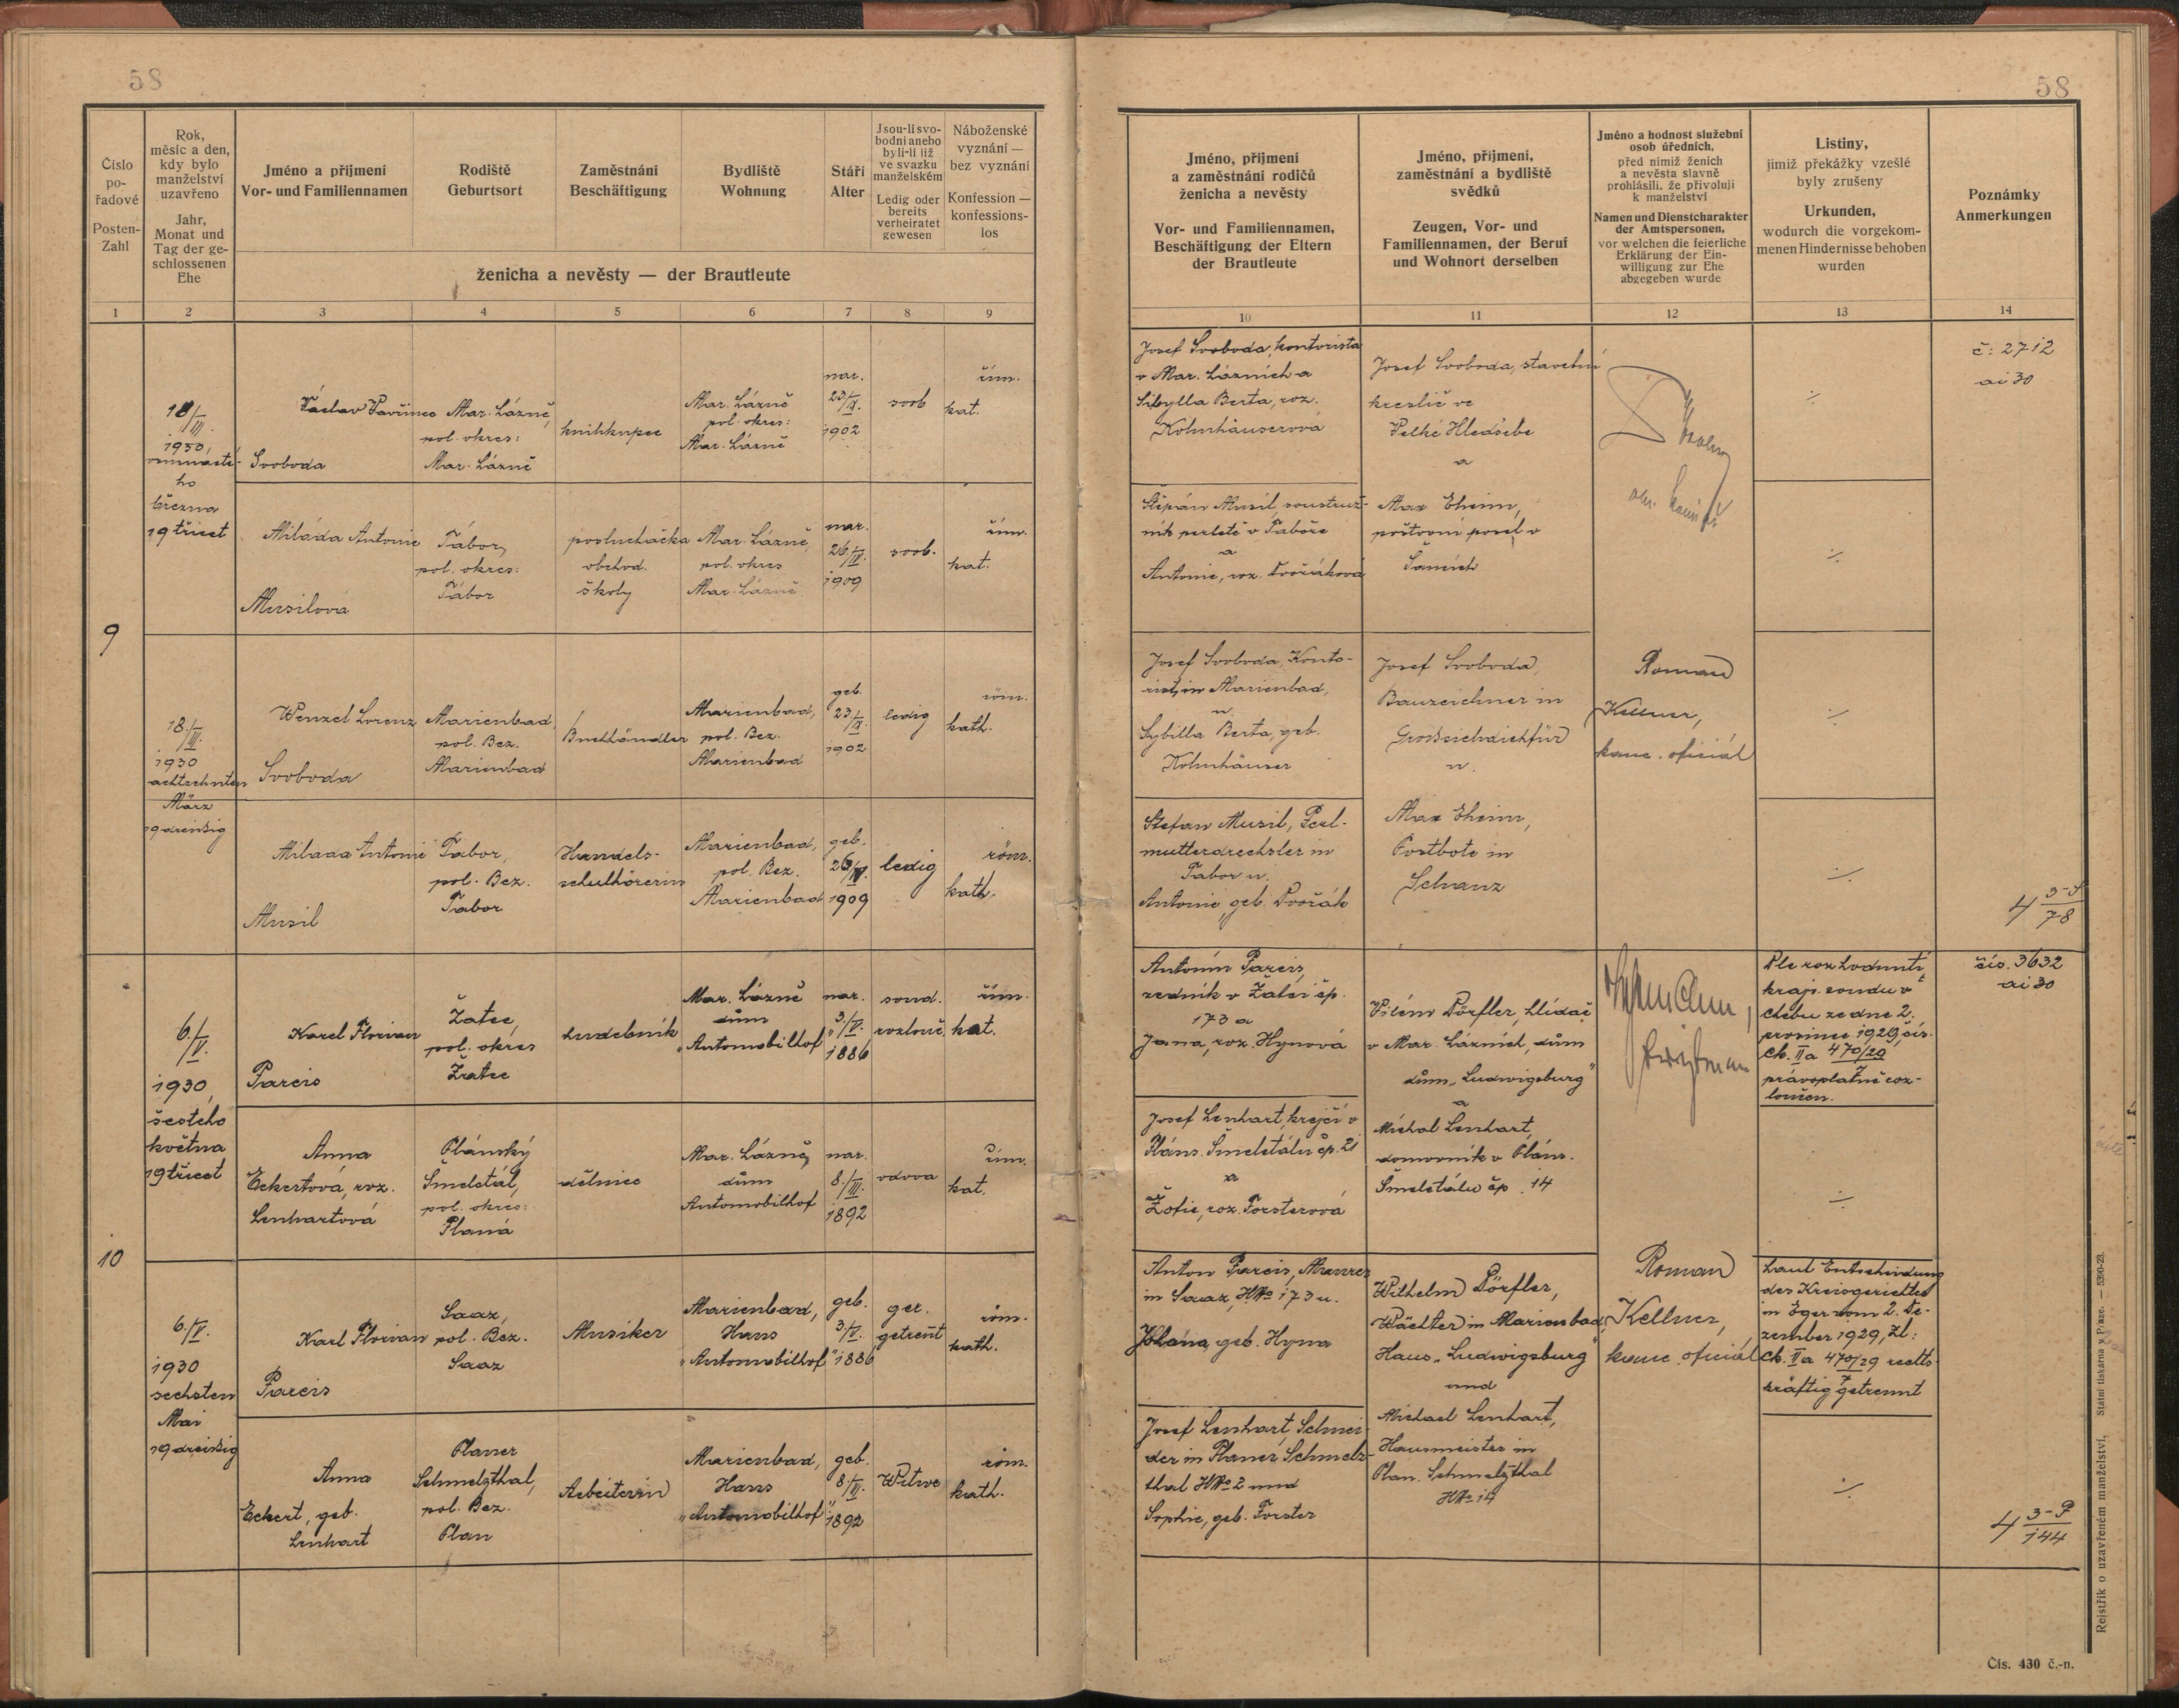 58
58
Číslo
po-
řadové
Posten-
Zahl
Rok,
měsíc a den,
kdy bylo
manželství
uzavřeno
Jahr,
Monat und
Tag der ge-
schlossenen
Ehe
Jméno a přijmení
Vor- und Familiennamen
Rodiště
Geburtsort
Zaměstnání
Beschäftigung
Bydliště
Wohnung
Stáří
Alter
Jsou-li svo-
bodni anebo
byli-li již
ve svazku
manželském
Ledig oder
bereits
verheiratet
gewesen
Náboženské
vyznání —
bez vyznání
Konfession —
konfessions-
los
ženicha a nevěsty — der Brautleute
Jméno, přijmení
a zaměstnání rodičů
ženicha a nevěsty
Vor- und Familiennamen,
Beschäftigung der Eltern
der Brautleute
Jméno, přijmení,
zaměstnání a bydliště
svědků
Zeugen, Vor- und
Familiennamen, der Beruf
und Wohnort derselben
Jméno a hodnost služební
osob úředních,
před nimiž ženich
a nevěsta slavně
prohlásili, že přivolují
k manželství
Namen und Dienstcharakter
der Amtspersonen,
vor welchen die feierliche
Erklärung der Ein-
willigung zur Ehe
abgegeben wurde
Listiny,
jimiž překážky vzešlé
byly zrušeny
Urkunden,
wodurch die vorgekom-
menen Hindernisse behoben
wurden
Poznámky
Anmerkungen
1 2 3 4 5 6 7 8 9 10 11 12 13 14
9
18/III.
1930,
osmnácté-
ho
března
19třicet
Václav Vavřinec
Svoboda
Mar. Lázně,
pol. okres:
Mar. Lázně
knihkupec
Mar. Lázně
pol. okres:
Mar. Lázně
nar.
23/IX.
1902
svob
řím.
kat.
Josef Svoboda, kontorista
v Mar. Lázních a
Sibylla Berta, roz.
Kohnhäuserová
Josef Svoboda, stavební
kreslič ve
Velké Hleďsebe
a
./.
č: 2712
ai 30
Miláda Antonie
Musilová
Tábor,
pol. okres:
Tábor
posluchačka
obchod.
školy
Mar. Lázně,
pol. okres
Mar. Lázně
nar.
26/IV.
1909
svob.
řím.
kat.
Štěpán Musil, soustruž-
ník perletě v Táboře
a
Antonie, roz. Dvořáková
Max Eheim,
poštovní posel v
./.
18./III.
1930
achtzehnten
März
19dreißig
Wenzel Lorenz
Svoboda
Marienbad,
pol. Bez.
Marienbad
Buchhändler
Marienbad,
pol. Bez.
Marienbad
geb.
23./IX.
1902
ledig
röm.
kath.
Josef Svoboda, Konto-
rist, in Marienbad,
u.
Sybilla Berta, geb.
Kohnhäuser
Josef Svoboda,
Bauzeichner in
Großsichdichfür
u.
Roman
Kellner,
kanc. oficiál
./.
Milada Antonie
Musil
Tabor,
pol. Bez.
Tabor
Handels-
schulhörerin
Marienbad,
pol. Bez.
Marienbad
geb.
26/IV.
1909
ledig
röm.
kath.
Stefan Musil, Perl-
mutterdrechsler in
Tabor u.
Antonie, geb. Dvořák
Max Eheim,
Postbote in
Schanz
./.
4 3-S
78
10
6./V.
1930,
šestého
května
19třicet
Karel Florian
Pareis
Žatec,
pol. okres
Žatec
hudebník
Mar. Lázně
dům
„Automobilhof"
nar.
3./V.
1886
soud.
rozlouč.
řím.
kat.
Antonín Pareis,
zedník v Žatci čp.
173 a
Jana, roz. Hynová
Vilém Dörfler, hlídač
v Mar. Lázních, dům
dům „Ludwigsburg"
a
Dle rozhodnutí
kraj. soudu v
Chebu ze dne 2.
prosince 1929, čís.
Ck. IIa 470/29
7
právoplatně roz-
loučen.
čís. 3632
ai 30
Anna
Eckertová, roz.
Lenhartová
Plánský
Šmelctál,
pol. okres:
Planá
dělnice
Mar. Lázně,
dům
Automobilhof
nar.
8./III.
1892
vdova
řím.
kat.
Josef Lenhart, krejčí v
Pláns. Šmelctálu čp. 21
a
Žofie, roz. Forsterová
Michal Lenhart,
domovník v Pláns.
Šmelctálu čp. 14
./.
6./V.
1930
sechsten
Mai
19dreißig
Karl Florian
Pareis
Saaz,
pol. Bez.
Saaz
Musiker
Marienbad,
Haus
„Automobilhof"
geb.
3./V.
1886
ger.
getrent
röm.
kath.
Anton Pareis, Maurer
in Saaz, HNo 173 u.
Johana, geb. Hyna
Wilhelm Dörfler,
Wächter in Marienbad,
Haus „Ludwigsburg"
und
Roman
Kellner,
kanc. oficiál
Laut Entscheidung
des Kreisgerichtes
in Eger vom 2. De-
zember 1929, Zl:
Ck. IIa 470/29 rechts-
7
kräftig getrennt
Anna
Eckert, geb.
Lenhart
Planer
Schmelzthal,
pol. Bez.
Plan
Arbeiterin
Marienbad,
Haus
„Automobilhof"
geb.
8./III.
1892
Witwe
röm.
kath.
Josef Lenhart, Schnei-
der in Planer Schmelz-
thal HNo 2 und
Sophie, geb. Forster
Michael Lenhart,
Hausmeister in
Plan. Schmelzthal
HNo 14
./.
4 3-P
144
Rejstřík o uzavřeném manželství. Státní tiskárna v Praze. — 5390-23.
Čís. 430 č.-n.